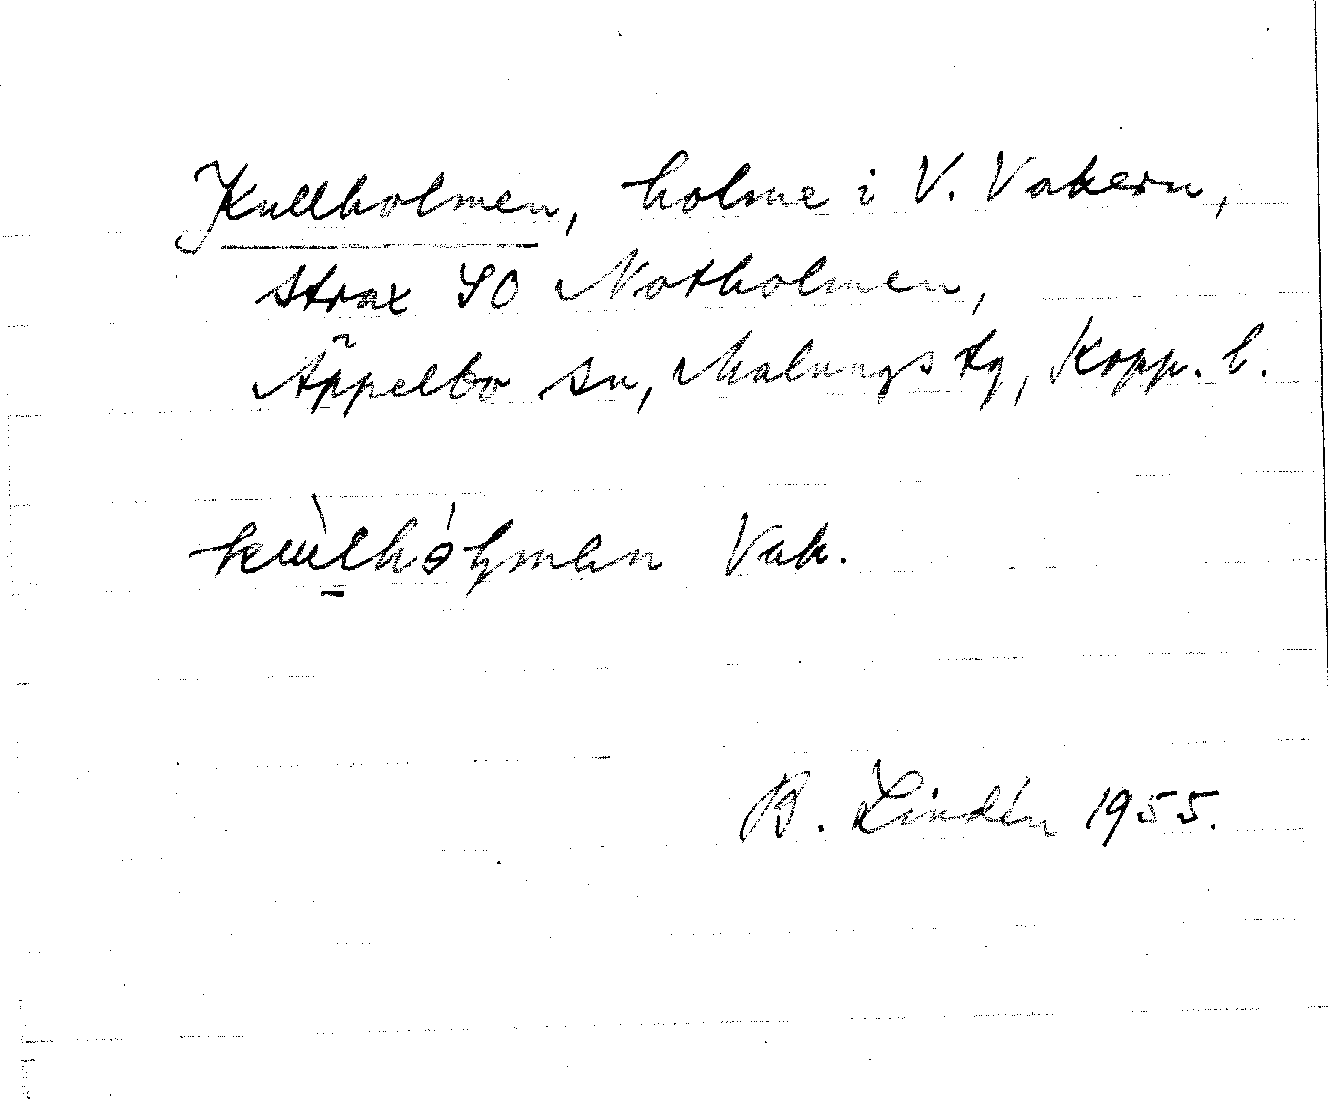 Kullholmen, holme i V. Vakern,
strax SO Notholmen,
Äppelbo sn, Malungs tg, Kopp. l.
Vak.
B. Lindén 1955.